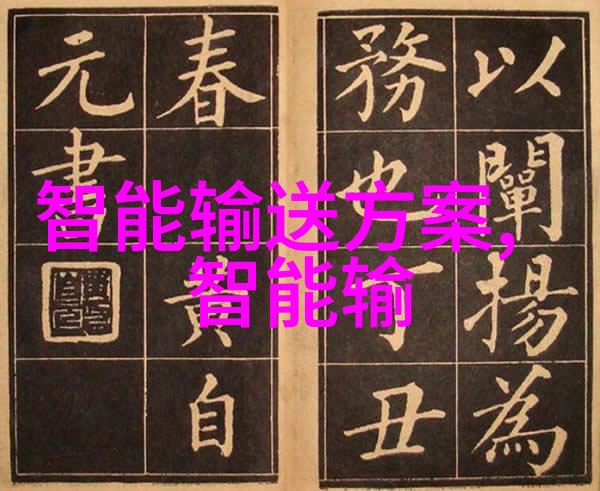 以闡揚為
務也丁丑
春黃自
元書
智能输送方案,
智能输